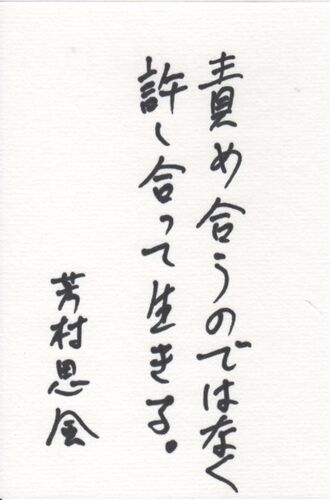 責め合うのではなく
許し合って生きる。
芳村思風